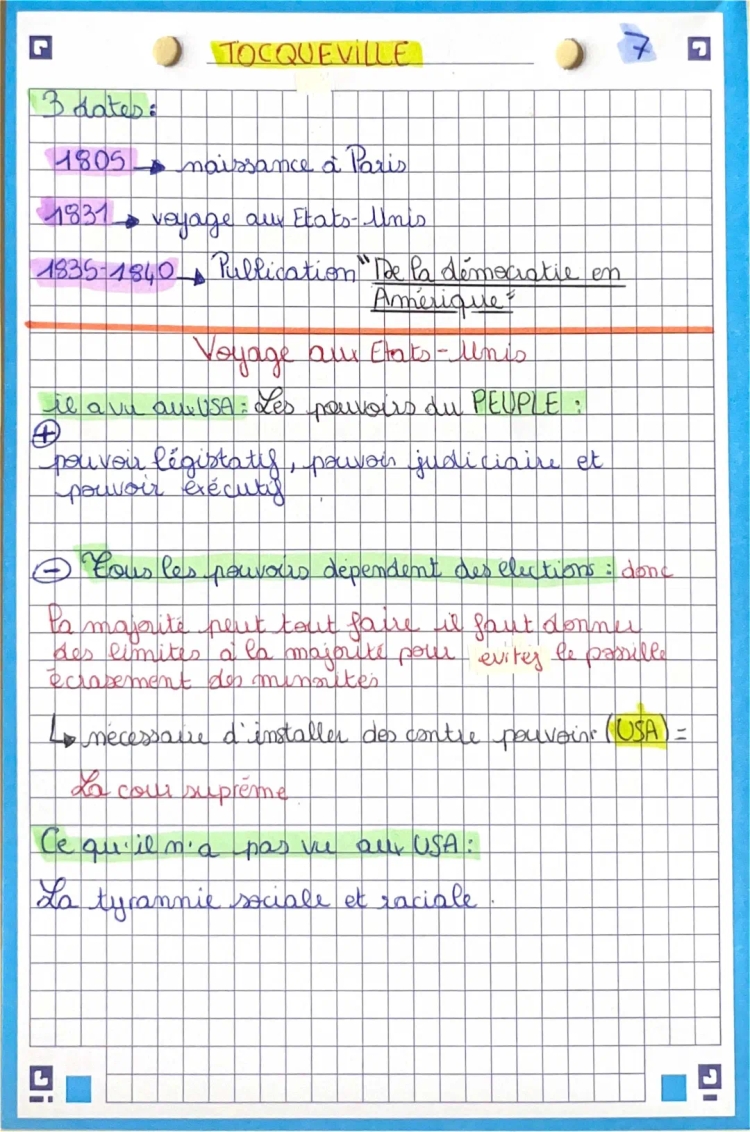 TOCQUEVILLE
7
3 dates :
1805 → naissance à Paris
1831 → voyage aux Etats-Unis
1835-1840 → Publication "De la démocratie en
Amérique"
Voyage aux Etats-Unis
il a vu aux USA : Les pouvoirs du PEUPLE :
+
pouvoir législatif, pouvoir judiciaire et
pouvoir exécutif
- Tous les pouvoirs dépendent des élections : donc
la majorité peut tout faire il faut donner
des limites à la majorité pour evites le possible
écrasement des minorités
↳ nécessaire d'installer des contre pouvoirs (USA) =
La cour suprême
Ce qu'il n'a pas vu aux USA :
La tyrannie sociale et raciale.